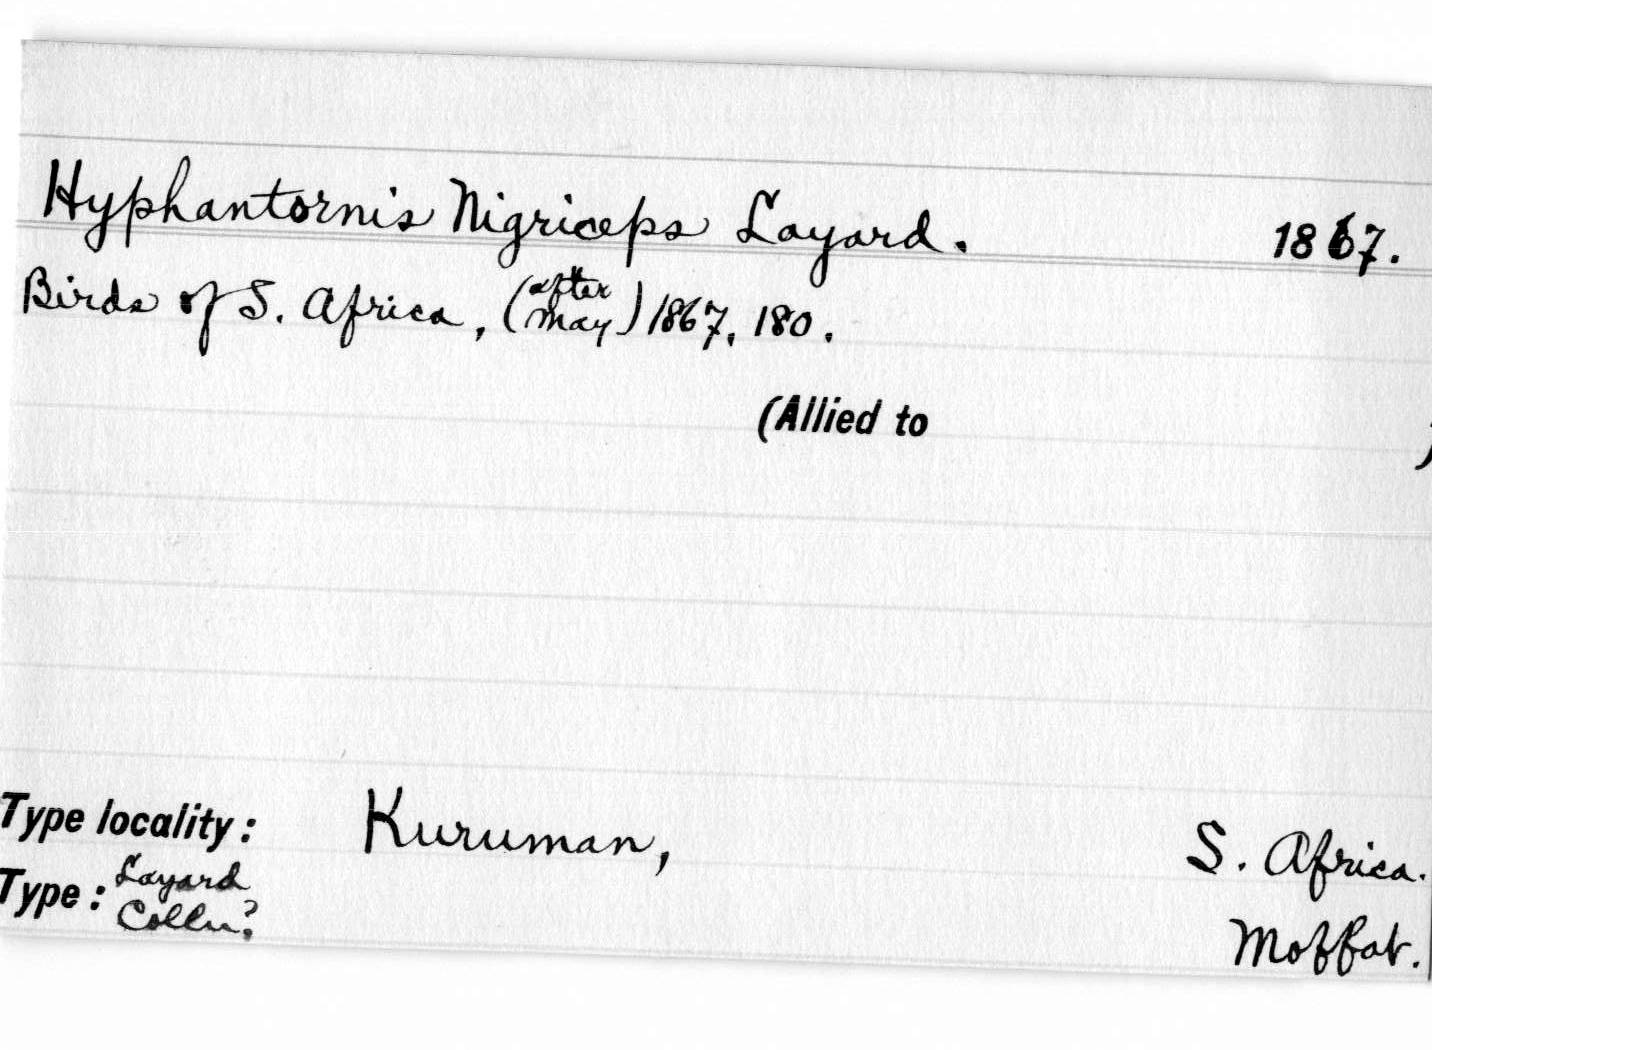 Hyphantornis Nigriceps Layard. 1867.
Birds of S. Africa, (after May) 1867, 180.
(Allied to )
Type locality: Kuruman, S. Africa.
Type: Layard Colln? Moffat.